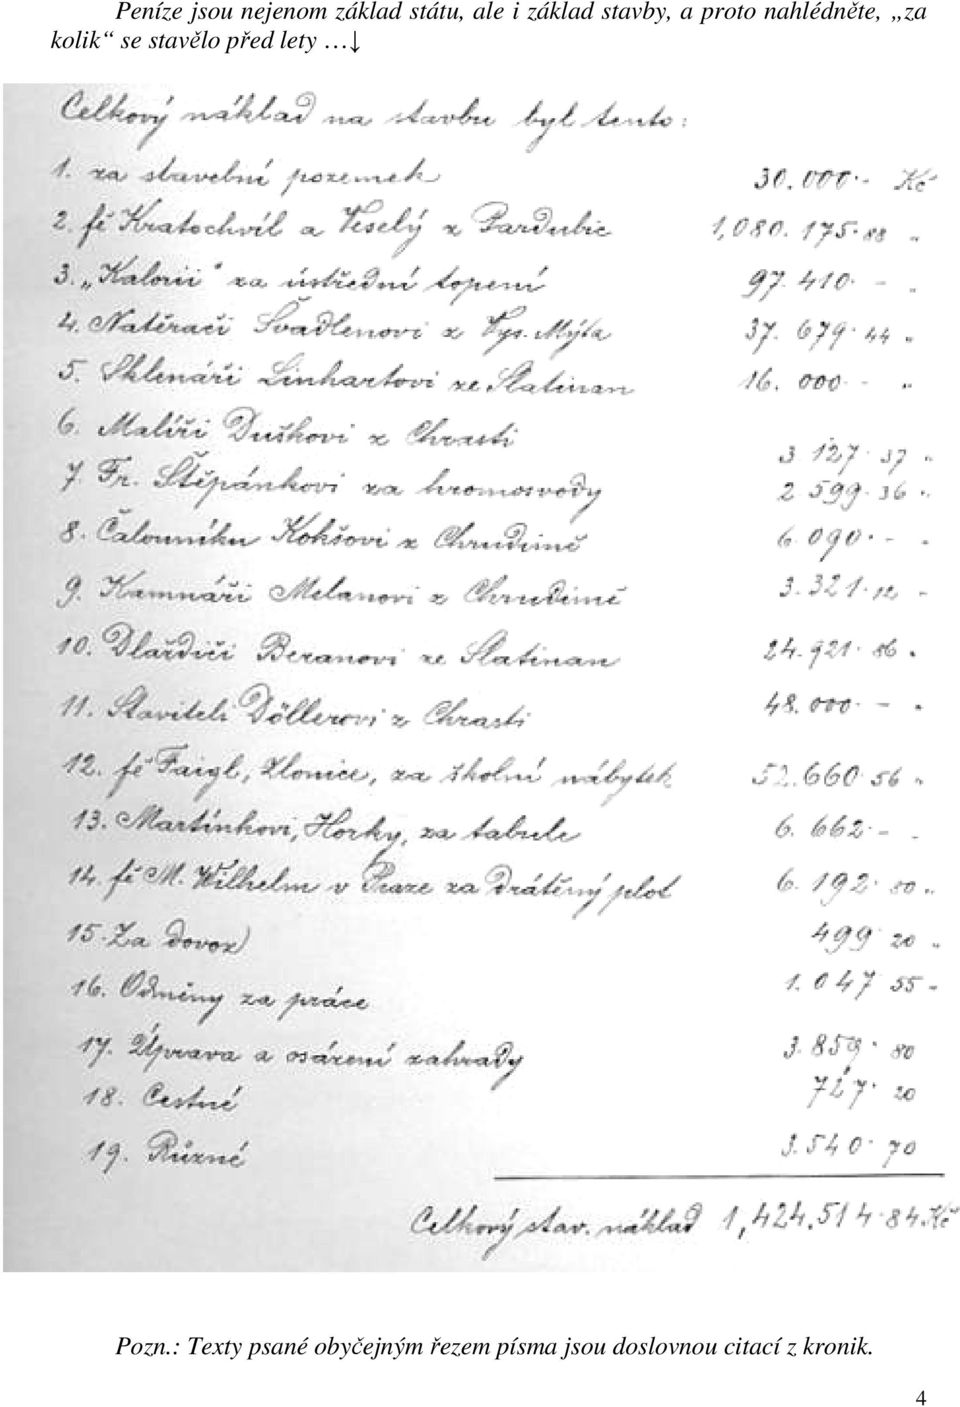 Peníze jsou nejenom základ státu, ale i základ stavby, a proto nahlédněte, „za
kolik“ se stavělo před lety …↓
Celkový náklad na stavbu byl tento:
1. za stavební pozemek 30.000·- Kč
2. fě Kratochvíl a Veselý z Pardubic 1,080.175·88 „
3. „Kalorii“ za ústřední topení 97.410·- „
4. Natěrači Švadlenovi z Vys. Mýta 37.679·44 „
5. Sklenáři Linhartovi ze Slatinan 16.000·- „
6. Malíři Duškovi z Chrasti 3.127·37 „
7. Fr. Štěpánkovi za hromosvody 2.599·36 „
8. Čalouníku Kokšovi z Chrudimě 6.090·- „
9. Kamnáři Melanovi z Chrudimě 3.321·12 „
10. Dlaždiči Beranovi ze Slatinan 24.921·86 „
11. Staviteli Döllerovi z Chrasti 48.000·- „
12. fě Faigl, Zlonice, za školní nábytek 52.660·56 „
13. Martínkovi, Horky, za tabule 6.662·- „
14. fě M. Wilhelm v Praze za drátěný plot 6.192·80 „
15. Za dovoz 499·20 „
16. Odměny za práce 1.047·55 „
17. Úprava a osázení zahrady 3.859·80
18. Cestné 727·20
19. Různé 3.540·70
Celkový stav. náklad 1,424.514·84 Kč
Pozn.: Texty psané obyčejným řezem písma jsou doslovnou citací z kronik.
4